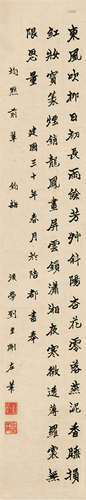 東風吹柳日初長雨餘芳艸斜陽杏花零落燕泥香睡損
紅妝寶篆煙銷龍鳳畫屏雲鎖瀟湘夜寒微透薄羅裳無
限思量 建國三十年春月於陪都書奉
均默前輩
後學劉